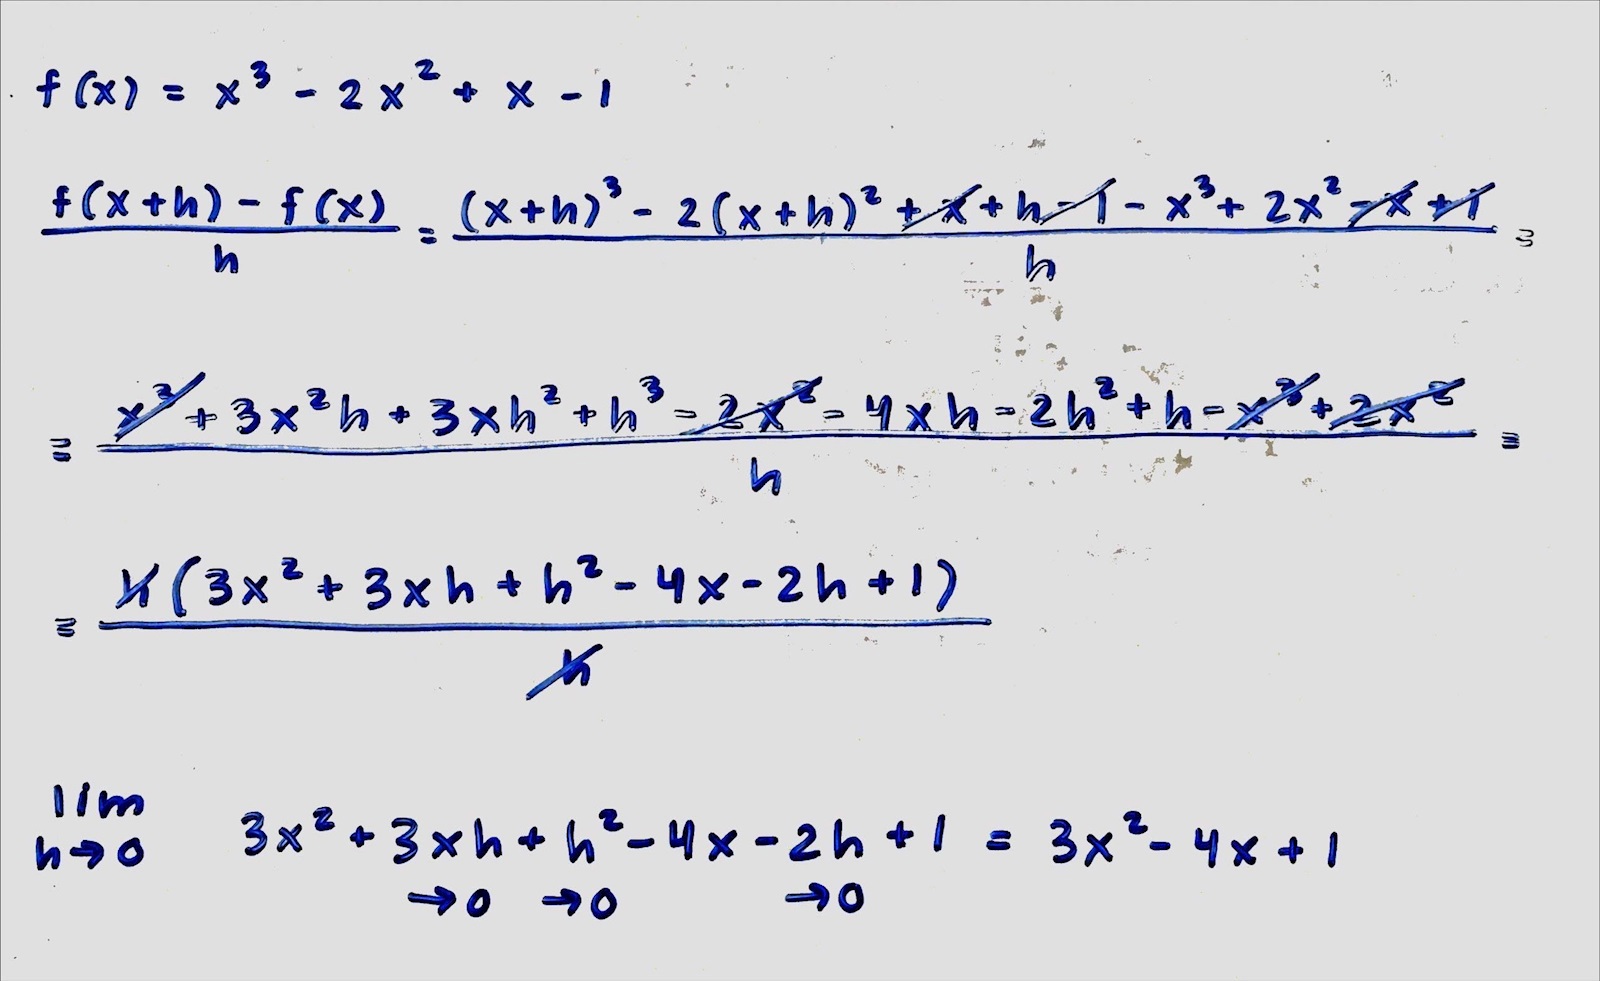 f(x) = x³ - 2x² + x - 1
f(x+h) - f(x) / h = (x+h)³ - 2(x+h)² + x + h - 1 - x³ + 2x² - x + 1 / h =
= x³ + 3x²h + 3xh² + h³ - 2x² - 4xh - 2h² + h - x³ + 2x² / h =
= h(3x² + 3xh + h² - 4x - 2h + 1) / h
lim h→0 3x² + 3xh + h² - 4x - 2h + 1 = 3x² - 4x + 1
→0 →0 →0